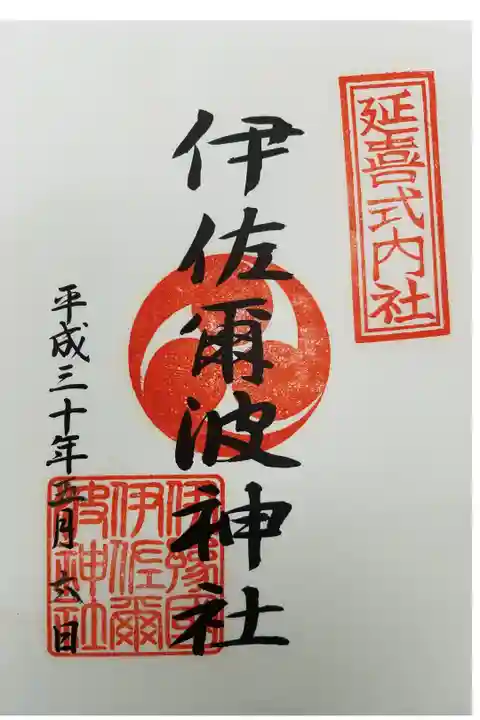 延喜式内社
伊佐爾波神社
伊豫国
伊佐爾
波神社
平成三十年五月六日